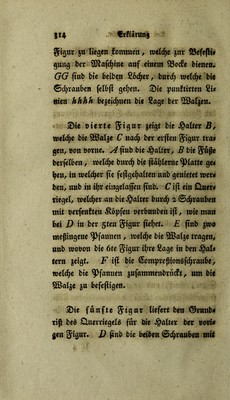 314 Erklärung
Figur zu liegen kommen, welche zur Befesti-
gung der Maschine auf einem Bocke dienen.
GG sind die beiden Löcher, durch welche die
Schrauben selbst gehen. Die punktirten Li-
nien hhhh bezeichnen die Lage der Walzen.
Die vierte Figur zeigt die Halter B,
welche die Walze C nach der ersten Figur tra-
gen, von vorne. A sind die Halter, B die Füße
derselben, welche durch die stählerne Platte ge-
hen, in welcher sie festgehalten und genietet wer-
den, und in ihr eingelassen sind. C ist ein Quer-
riegel, welcher an die Halter durch 2 Schrauben
mit versenkten Köpfen verbunden ist, wie man
bei D in der 5ten Figur siehet. E sind zwo
messingene Pfannen, welche die Walze tragen,
und wovon die 6te Figur ihre Lage in den Hal-
tern zeigt. F ist die Compreßionsschraube,
welche die Pfannen zusammendrückt, um die
Walze zu befestigen.
Die fünfte Figur liefert den Grund-
riß des Querriegels für die Halter der vori-
gen Figur. D sind die beiden Schrauben mit